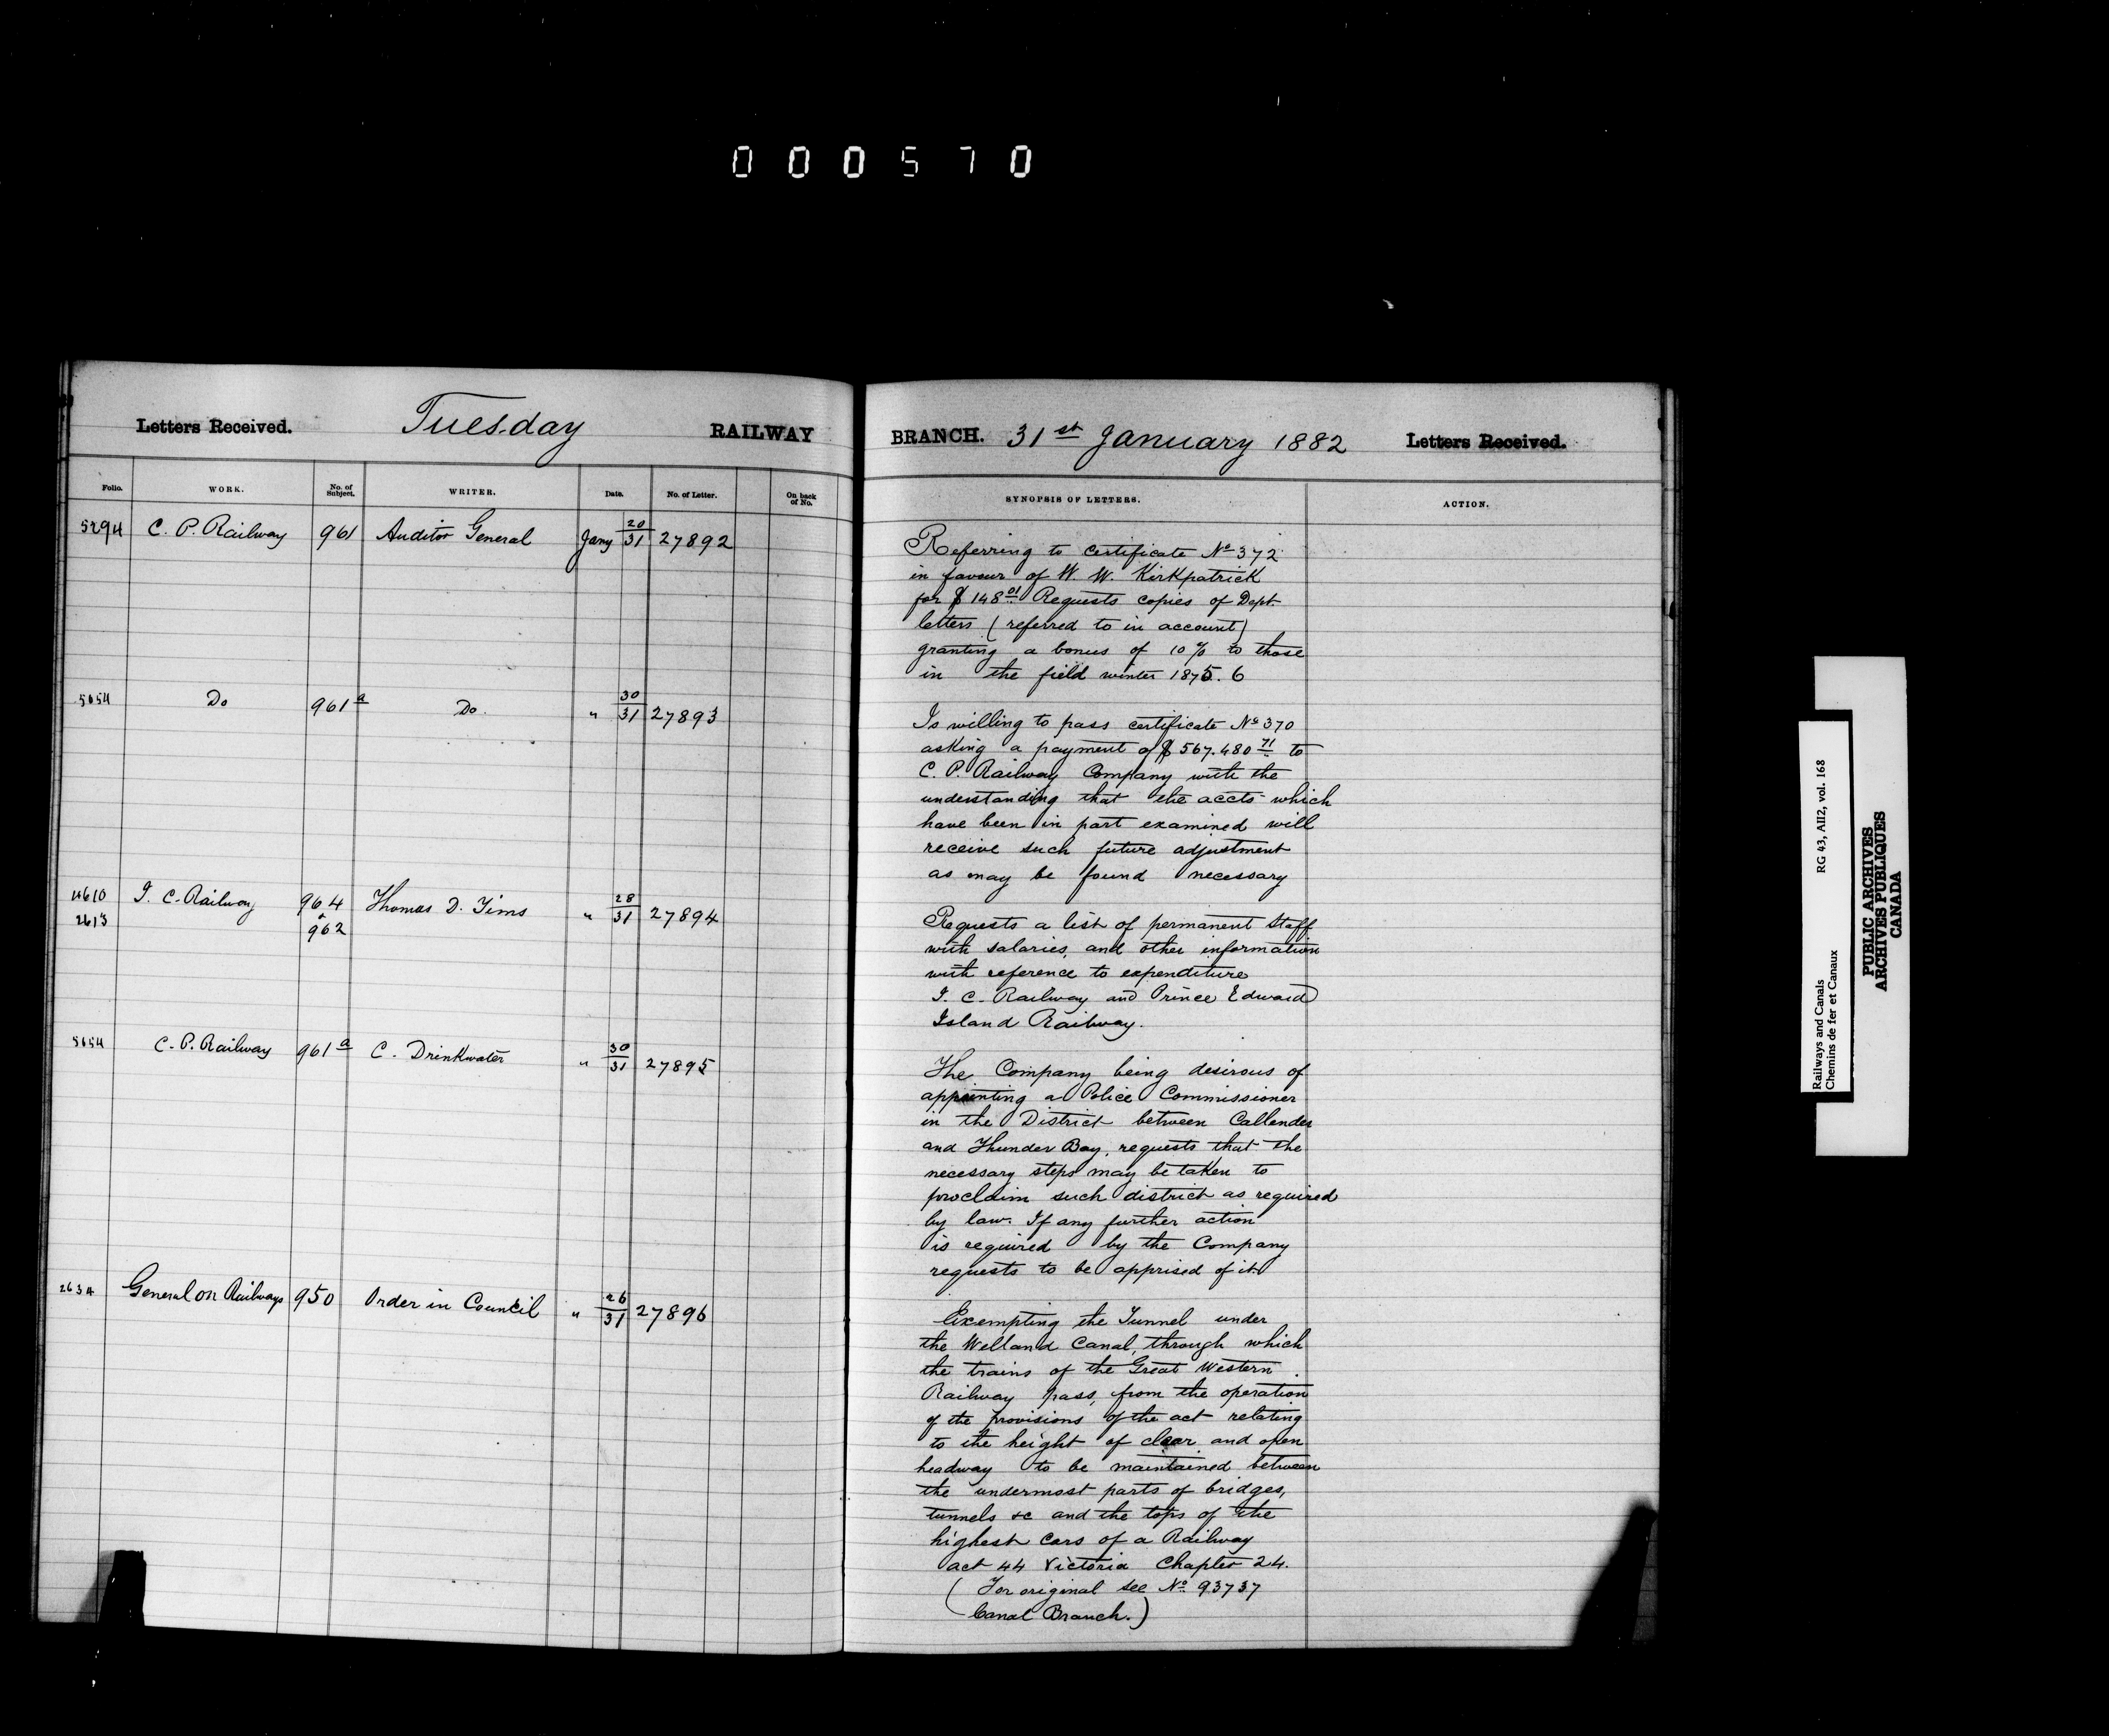 000570
Letters Received. Tuesday RAILWAY BRANCH. 31st January 1882 Letters Received.
Folio. WORK. No. of Subject. WRITER. Date. No. of Letter. On back of No. SYNOPSIS OF LETTERS. ACTION.
5294 C. P. Railway 961 Auditor General Jany 20/31 27892
Referring to certificate No 372
in favour of W. W. Kirkpatrick
for $148.01 Requests copies of Dept.
letters (referred to in account)
granting a bonus of 10% to those
in the field winter 1875.6
5654 Do 961a Do. " 30/31 27893
Is willing to pass certificate No 370
asking a payment of $567.480 71 to
C. P. Railway Company with the
understanding that the accts which
have been in part examined will
receive such future adjustment
as may be found necessary
4610 I. C. Railway 964 Thomas D. Tims " 28/31 27894
2613 + 962
Requests a list of permanent Staff
with salaries, and other information
with reference to expenditure
I. C. Railway and Prince Edward
Island Railway.
5654 C. P. Railway 961a C. Drinkwater " 30/31 27895
The Company being desirous of
appointing a Police Commissioner
in the District between Callender
and Thunder Bay, requests that the
necessary steps may be taken to
proclaim such district as required
by law. If any further action
is required by the Company
requests to be apprised of it.
2634 General on Railways 950 Order in Council " 26/31 27896
Exempting the Tunnel under
the Welland Canal, through which
the trains of the Great Western
Railway pass, from the operation
of the provisions of the act relating
to the height of clear and open
headway to be maintained between
the undermost parts of bridges,
tunnels &c and the tops of the
highest cars of a Railway
act 44 Victoria Chapter 24.
(For original see No. 93737
Canal Branch.)
Railways and Canals RG 43, AII2, vol. 168
Chemins de fer et Canaux
PUBLIC ARCHIVES
ARCHIVES PUBLIQUES
CANADA